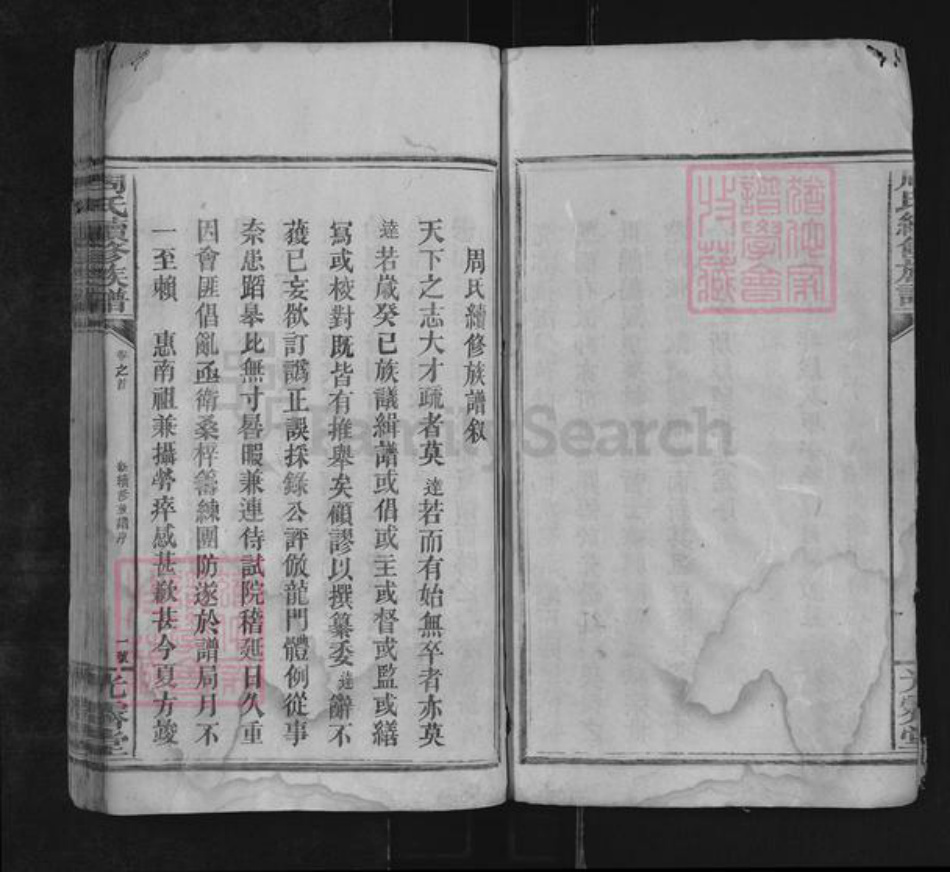 周氏續修族譜叙
天下之志大才疏者莫達若而有始無卒者亦莫
達若歲癸巳族議緝譜或倡或主或督或監或繕
寫或校對既皆有推舉矣顧謬以撰纂委達辭不
獲已妄欲訂譌正誤採錄公評倣龍門體例從事
柰患蹈皋比無寸晷暇兼連侍試院稽延日久重
因會匪倡亂亟衛桑梓籌練團防遂於譜局月不
一至賴 惠南祖兼攝勞瘁感甚歉甚今夏方竣
周氏續修族譜
卷之首
續修族譜序
一號
光霽堂
周氏續修族譜
光霽堂
譜學會
收藏
FamilySearch